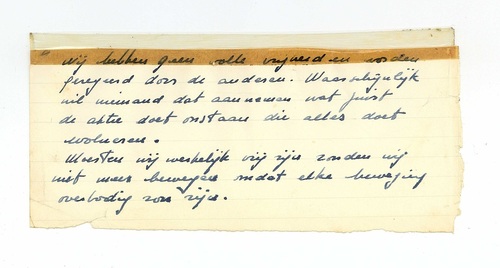 Wij hebben geen volle vrijheid en worden
geregeerd door de anderen. Waarschijnlijk
wil niemand dat aannemen wat juist
de aktie doet onstaan die alles doet
evolueren.
Moesten wij werkelijk vrij zijn zouden wij
niet meer bewegen omdat elke beweging
overbodig zou zijn.